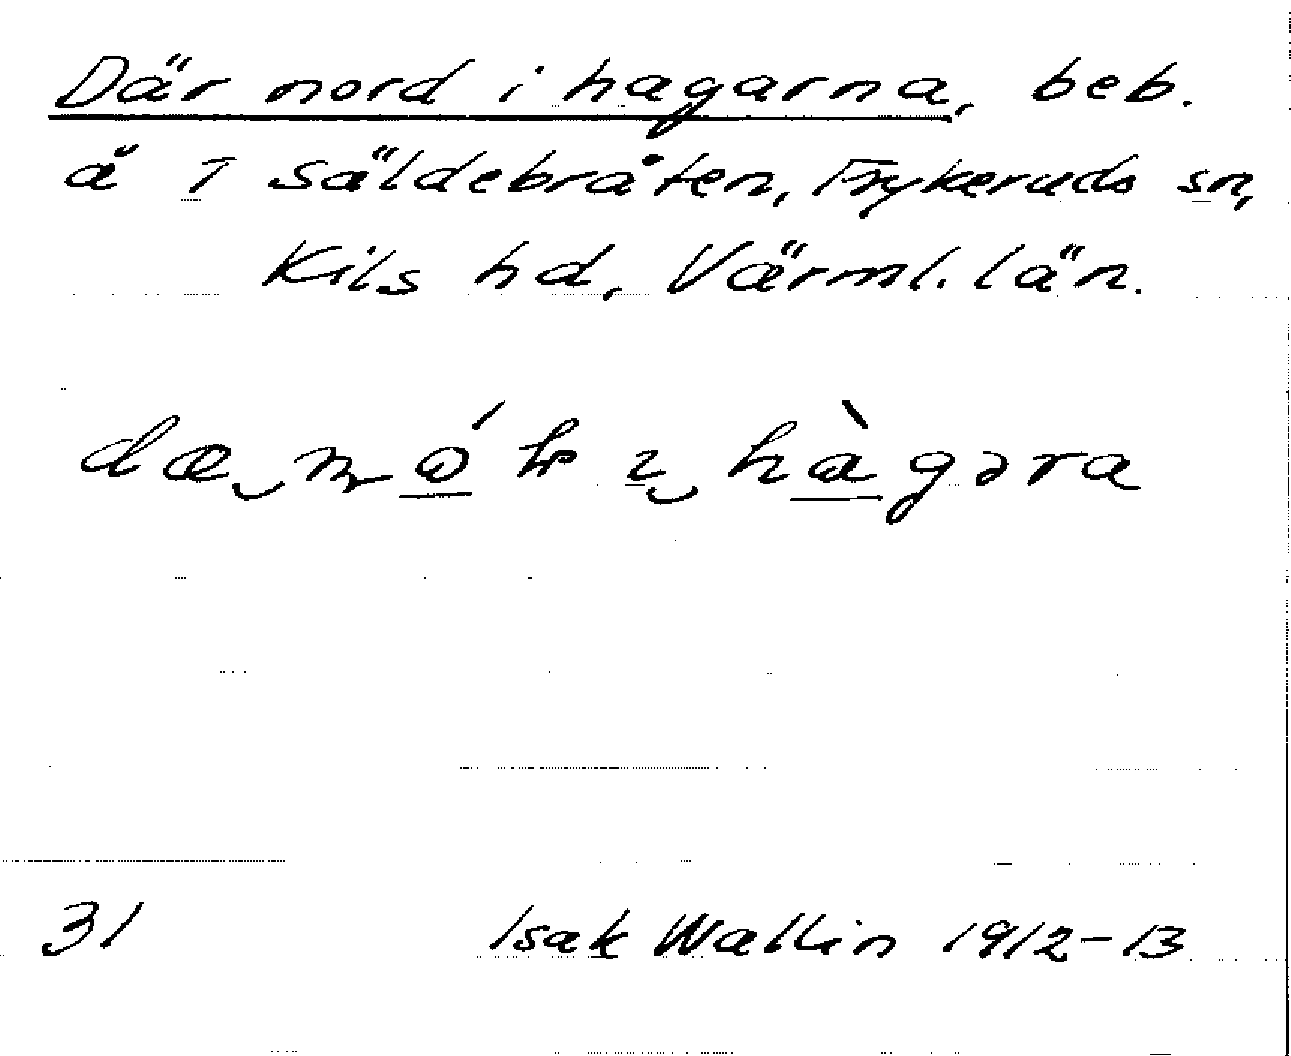 Där nord i hagarna, beb.
å 1 Säldebråten, Frykeruds sn,
Kils hd, Värml. län.
hàgəra
31 Isak Wallin 1912-13